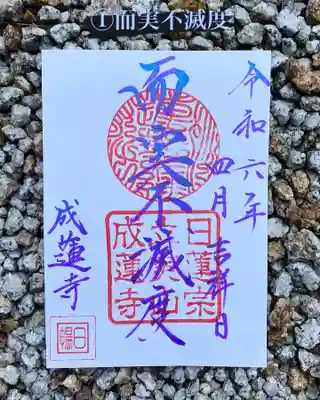 ①而実不滅度
令和六年
四月吉祥日
而実不滅度
日蓮宗
成蓮寺
成蓮寺